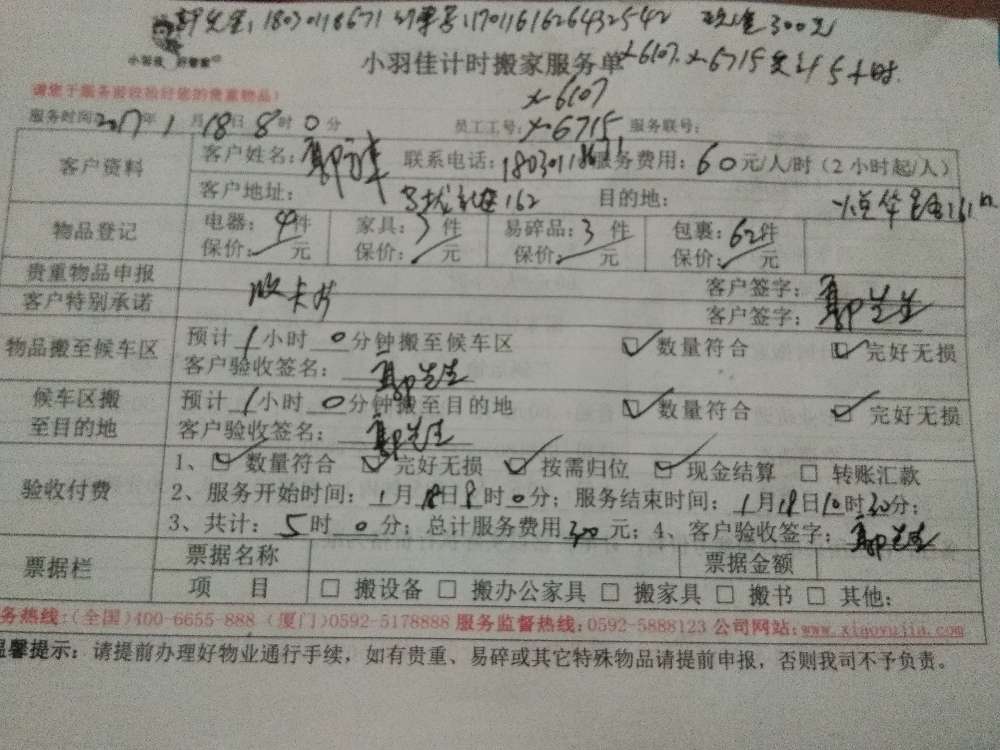 郭先生：18030118671 订单号：1701161626432542 现金300元
小羽佳 好管家
小羽佳计时搬家服务单 X-6107. X-6715共计5小时.
请您于服务前收拾好您的贵重物品！
X-6107
服务时间：2017年1月18日8时0分 员工工号：X-6715 服务联号：
客户资料 客户姓名：郭 联系电话：18030118671 服务费用：60元/人/时（2小时起/人）
客户地址： 162 目的地： 161
物品登记 电器：4件 家具：3件 易碎品：3件 包裹：62件
保价： 元 保价： 元 保价： 元 保价： 元
贵重物品申报 客户签字：郭先生
客户特别承诺 收卡片 客户签字：
物品搬至候车区 预计1小时0分钟搬至候车区 数量符合 完好无损
客户验收签名：郭先生
候车区搬至目的地 预计1小时0分钟搬至目的地 数量符合 完好无损
客户验收签名：郭先生
验收付费 1、数量符合 完好无损 按需归位 现金结算 转账汇款
2、服务开始时间：1月18日8时0分；服务结束时间：1月18日10时30分；
3、共计：5时0分；总计服务费用300元；4、客户验收签字：郭先生
票据栏 票据名称 票据金额
项 目 搬设备 搬办公家具 搬家具 搬书 其他：
务热线：(全国)400-6655-888 (厦门)0592-5178888 服务监督热线：0592-5888123 公司网站：www.xiaoyujia.com
温馨提示：请提前办理好物业通行手续，如有贵重、易碎或其它特殊物品请提前申报，否则我司不予负责。